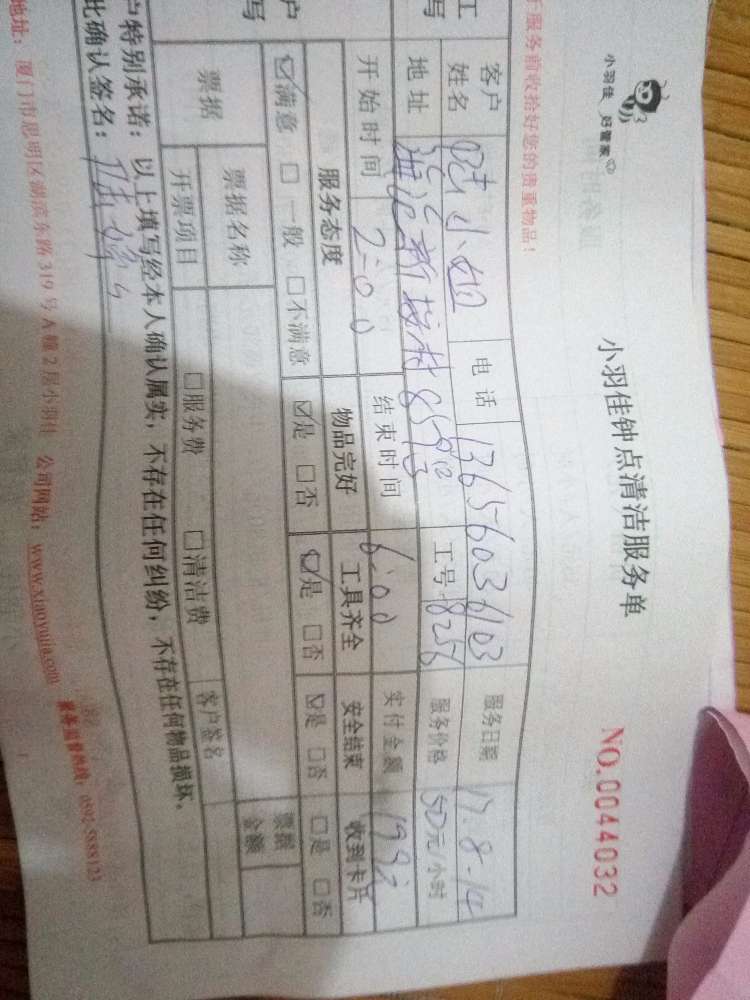 小羽佳 好管家
小羽佳钟点清洁服务单
NO.0044032
服务前收拾好您的贵重物品！
客户姓名 陆小姐 电话 13656036103 服务日期 17.8.14
地址 新村 工号 8256 服务价格 50元/小时
开始时间 2:00 结束时间 6:00 实付金额 199
服务态度 物品完好 工具齐全 安全结束 收到卡片
☑满意 □一般 □不满意 ☑是 □否 ☑是 □否 ☑是 □否 □是 □否
票据 票据名称 票据金额
开票项目 □服务费 □清洁费 客户签名
户特别承诺：以上填写经本人确认属实，不存在任何纠纷，不存在任何物品损坏。
此确认签名：陆
地址：厦门市思明区湖滨东路319号A幢2层小羽佳 公司网站：www.xiaoyujia.com
服务监督热线：0592-5888123